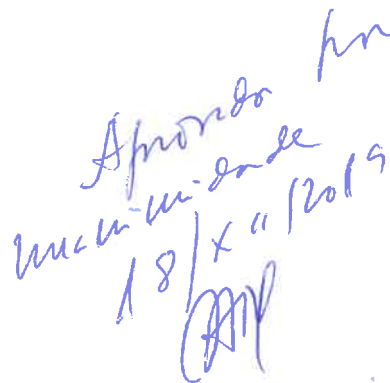 Aprovado por
unanimidade
18/XII/2019